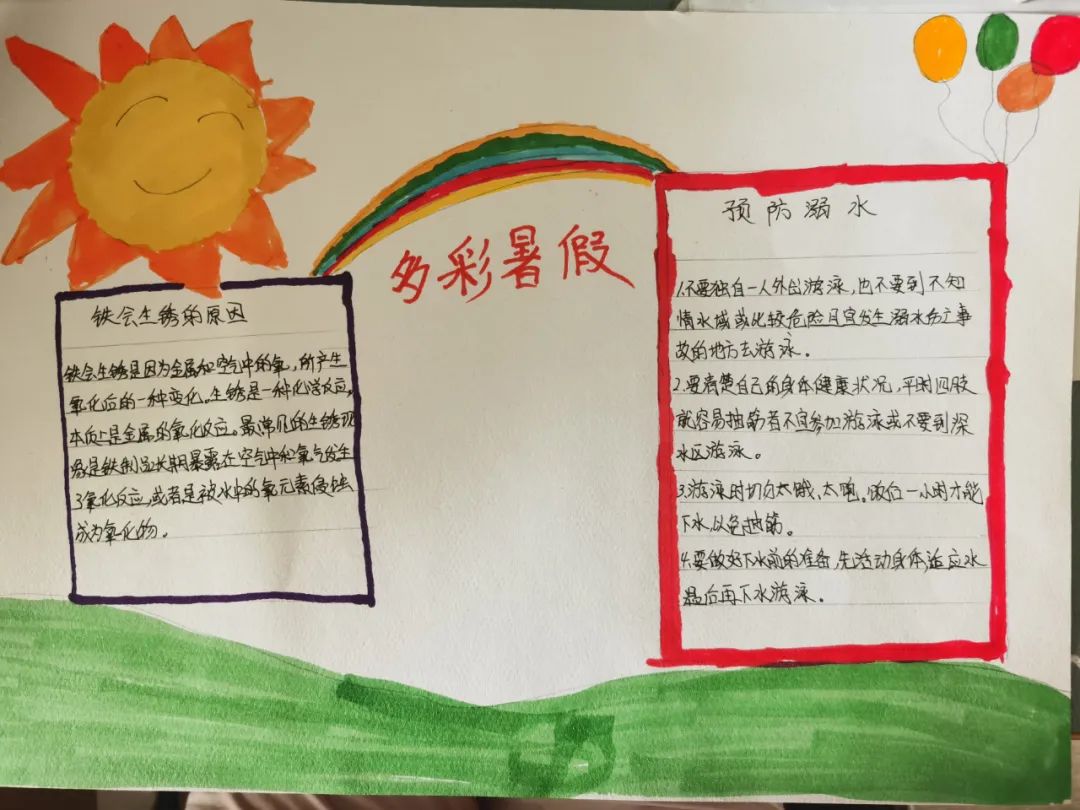 多彩暑假
铁会生锈的原因
铁会生锈是因为金属和空气中的氧，所产生
氧化后的一种变化。生锈是一种化学反应，
本质上是金属的氧化反应。最常见的生锈现
象是铁制品长期暴露在空气中和氧气发生
了氧化反应，或者是被水中的氧元素侵蚀
成为氧化物。
预防溺水
1.不要独自一人外出游泳，也不要到不知
情水域或比较危险且宜发生溺水伤亡事
故的地方去游泳。
2.要清楚自己的身体健康状况，平时四肢
就容易抽筋者不宜参加游泳或不要到深
水区游泳。
3.游泳时切勿太饿、太饱。饭后一小时才能
下水，以免抽筋。
4.要做好下水前的准备，先活动身体，适应水
温后再下水游泳。